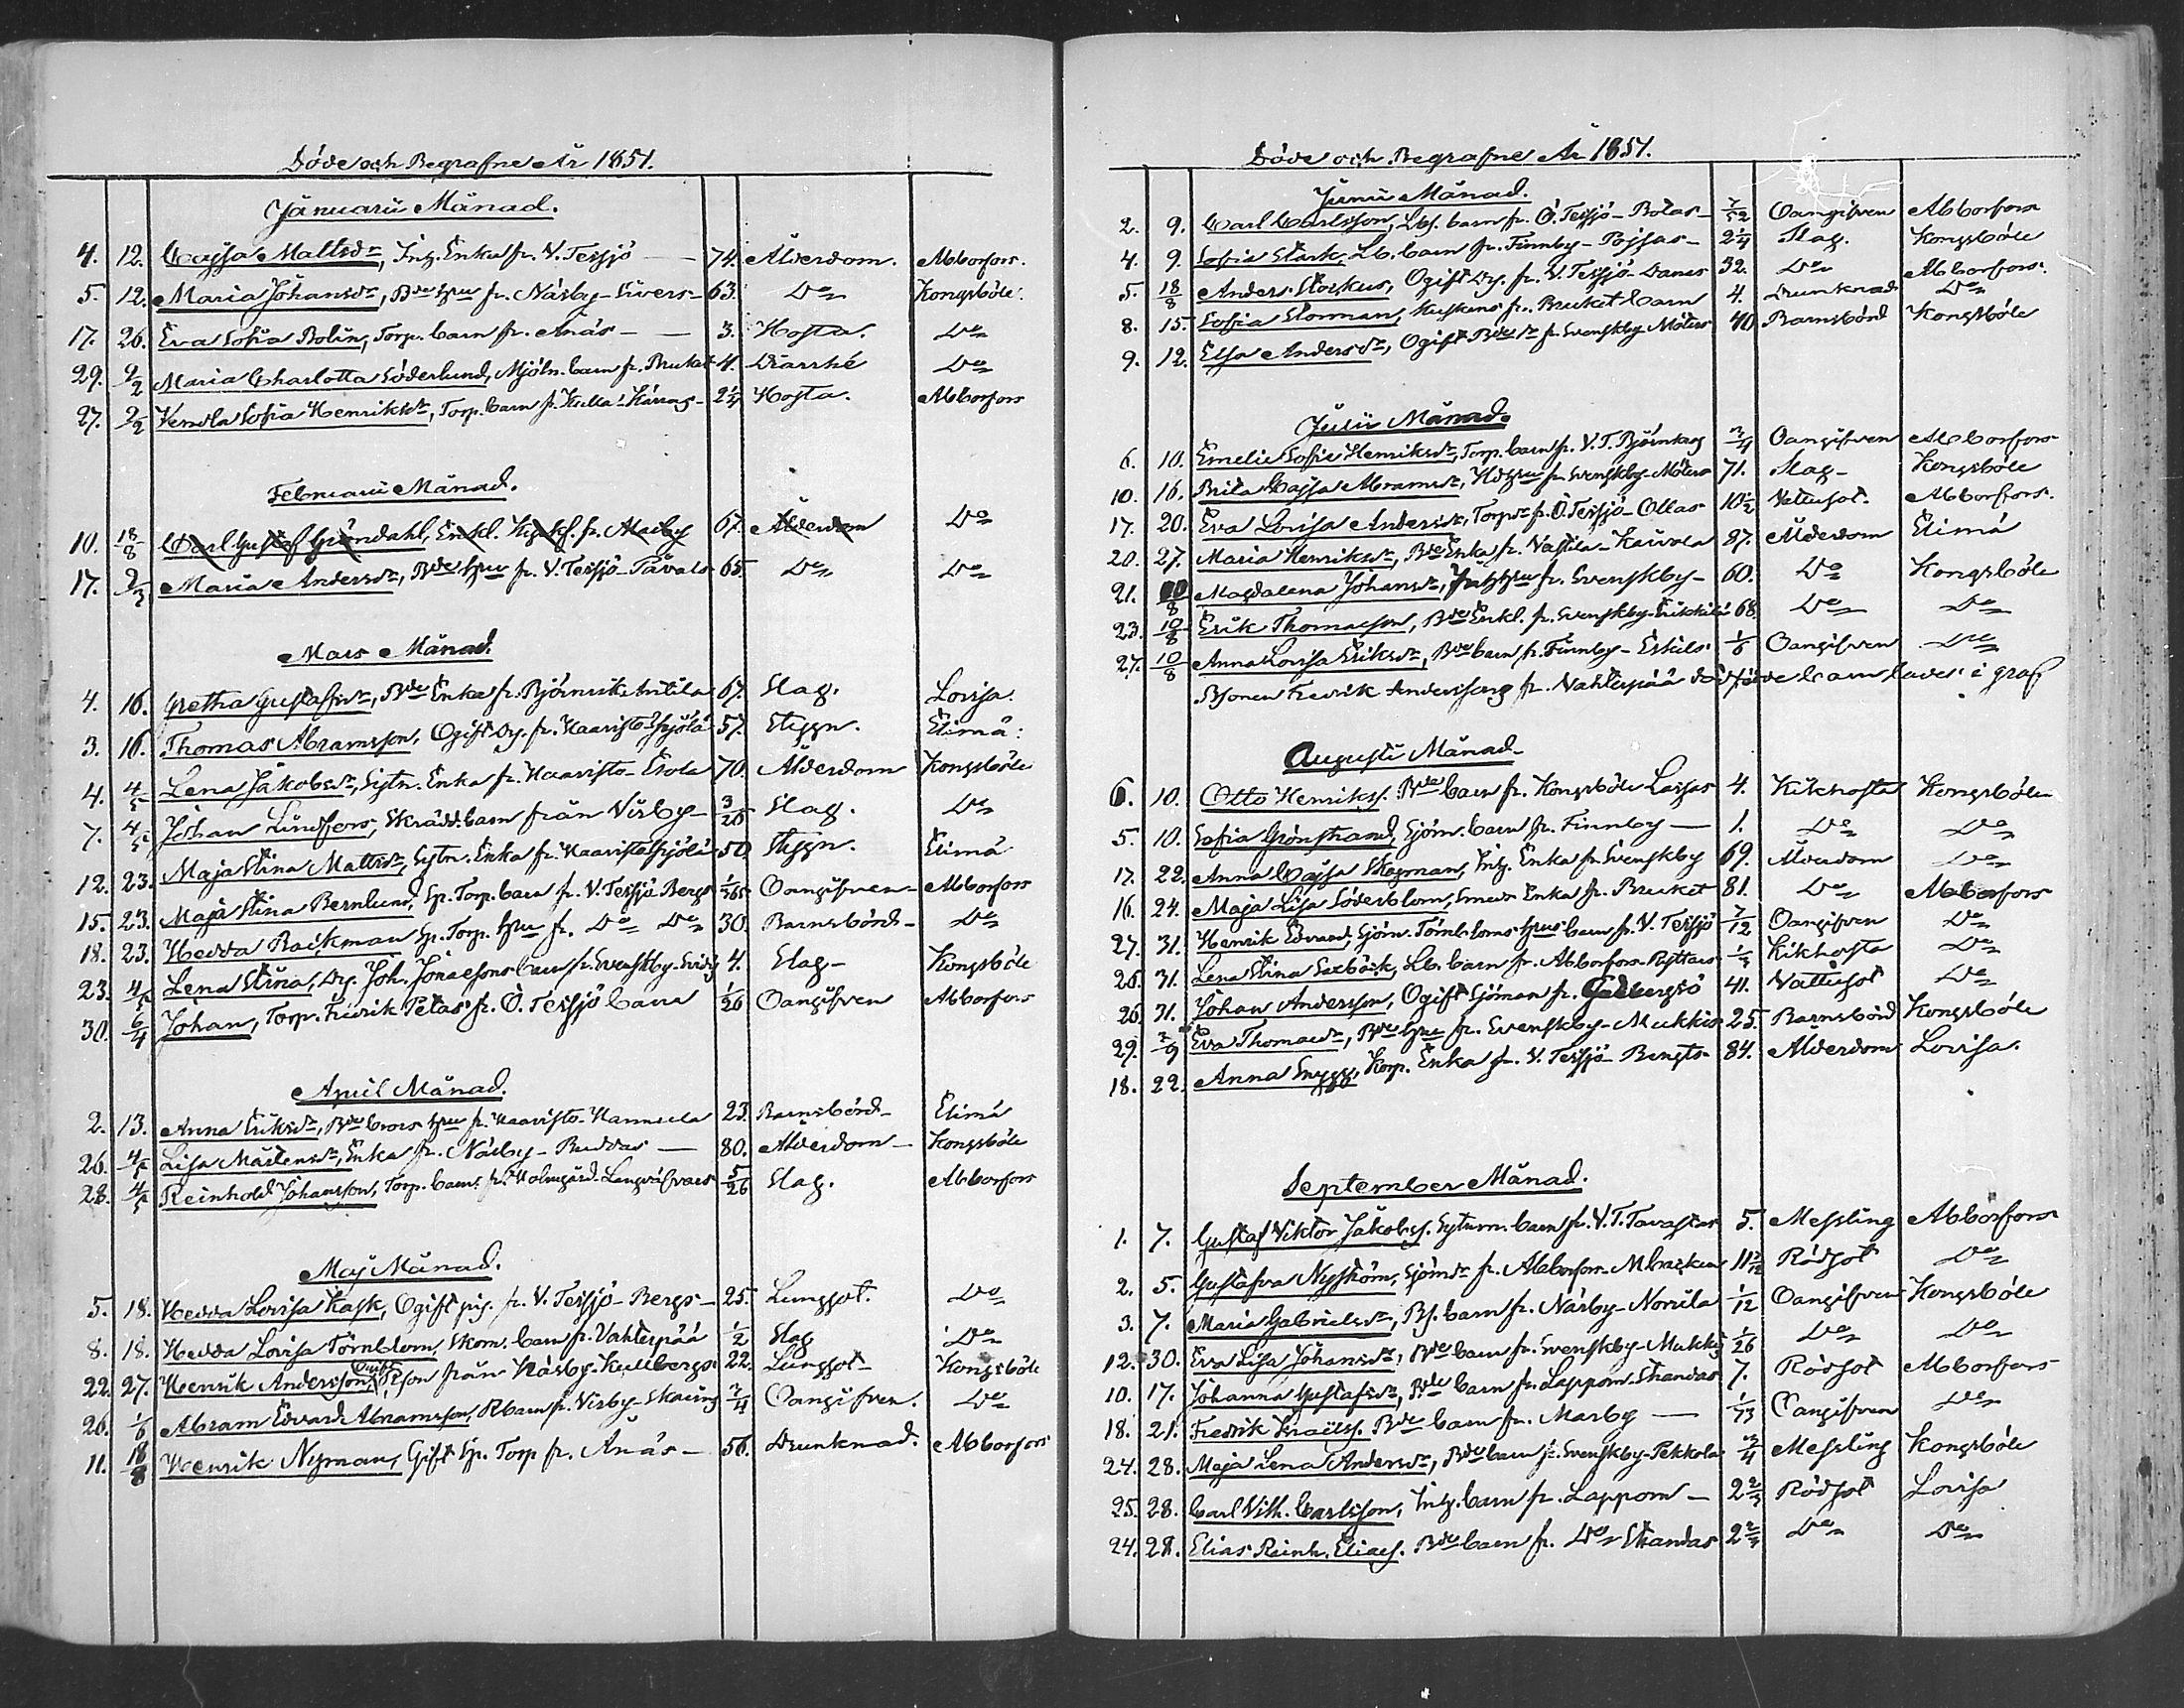 Döde och Begrafne År 1851.
Januarii Månad.
4. 12. Cajsa Mattsdr, Inh. Enka fr. V. Tessjö — 74. Ålderdom. Abborfors.
5. 12. Maria Johansdr, Bde hru fr. Näsby-Sivers- 63. Do Kongsböle.
17. 26. Eva Sofia Bolin, Torp. barn fr. Anäs — 3. Hosta. Do
29. 2/2 Maria Charlotta Söderlund, Mjöln. barn fr. Bruket 4. Diarrhé Do
27. 2/2 Vendla Sofia Henriksdr, Torp. barn fr. Kulla 2 1/4 Hosta. Abborfors
Februarii Månad.
10. 18/8 Carl Gustaf Gröndahl, Enkl. fr. Marby 67. Ålderdom Do
17. 2/3 Maria Andersdr, Bde hru fr. V. Tessjö- 65. Do Do
Mars Månad.
4. 16. Gretha Gustafsdr, Bde Enka fr. Björnvik Antila 67. Slag. Lovisa.
3. 16. Thomas Abramsson, Ogift Dr. fr. Haavisto 57. Styggn. Elimä.
4. 4/5 Lena Jakobsdr, Sytn. Enka fr. Haavisto- Esola 70. Ålderdom Kongsböle
7. 4/5 Johan Lindfors, Skrädd. barn från Virby- 3/26 Slag. Do
12. 23. Maja Stina Mattsdr, Sytn. Enka fr. Haavisto 50 Styggn. Elimä
15. 23. Maja Stina Bernlund, Sp. Torp. barn fr. V. Tessjö Bergs 1/365 Oangifven- Abborfors
18. 23. Hedda Backman Sp. Torp. hru fr. Do Do 30. Barnsbörd- Do
23. 4/5 Lena Stina, Dr. Joh. Jonaesons barn fr. Svenskby- 4. Slag- Kongsböle
30. 6/4 Johan, Torp. Fredrik Petas fr. Ö. Tessjö barn 1/26 Oangifven Abborfors
April Månad.
2. 13. Anna Eriksdr, Bde brors hru fr. Haavisto- Hannula 23. Barnsbörd- Elimä
26. 4/5 Lisa Mårtensdr, Enka fr. Näsby- Buddas — 80. Ålderdom- Kongsböle
28. 4/5 Reinhold Johansson, Torp. barn fr. Holmgård- 5/26 Slag. Abborfors
Maj Månad.
5. 18. Hedda Lovisa Kask, Ogift pig. fr. V. Tessjö- Bergs- 25. Lungsot. Do
8. 18. Hedda Lovisa Törnblom, Skom. barn fr. Vahterpää 1/2 Slag Do
22. 27. Henrik Andersson, Ogift Bson från Näsby- Kullbergs 22. Lungsot- Kongsböle
26. 1/6 Abram Edvard Abramsson, Bbarn fr. Virby- Skarins 3/4 Oangifven. Do
11. 18/8 Henrik Nyman, Gift Sp. Torp fr. Anäs- 56. Drunknad. Abborfors
Döde och Begrafne År 1851.
Junii Månad.
2. 9. Carl Carlsson, Lbs. barn fr. Ö. Tessjö- Botas- 7/52 Oangifven Abborfors
4. 9. Sofia Stark, Lb. barn fr. Finnby- Pojsas- 2 1/4 Slag. Kongsböle
5. 18/8 Anders Storkus, Ogift Dr. fr. V. Tessjö- Daners 32. Do Abborfors.
8. 15. Sofia Storman, Kuskens fr. Bruket barn 4. Drunknad Do
9. 12. Elsa Andersdr, Ogift Bde dr fr. Svenskby Mölers 40 Barnsbörd Kongsböle
Julii Månad.
6. 10. Emelie Sofie Henriksdr, Torp. barn fr. V. T. Björnkas 3/4 Oangifven Abborfors
10. 16. Brita Cajsa Abramsdr, fr. Svenskby- Mölers 71. Slag- Kongsböle
17. 20. Eva Lovisa Andersdr, Torp. dr fr. Ö. Tessjö- Ollas 10 1/2 Vattusot. Abborfors.
20. 27. Maria Henriksdr, Bde Enka fr. Vastila- Kaivola 87. Ålderdom Elimä
21. 10/8 Magdalena Johansdr, Inh. hru fr. Svenskby- 60. Do Kongsböle
23. 10/8 Erik Thomasson, Bde Enkl. fr. Svenskby- Erikkilä 68. Do Do
27. 10/8 Anna Lovisa Eriksdr, Bde barn fr. Finnby- Eskils 1/6 Oangifven Do
Bsonen Fredrik Anderssons fr. Vahterpää dödföde barn lades i graf
Augusti Månad.
6. 10. Otto Henriks. Bde barn fr. Kongsböle Lassas 4. Kikhosta Kongsböle
5. 10. Sofia Grönstrand, Sjöm. barn fr. Finnby — 1. Do Do
17. 22. Anna Cajsa Stegman, Inh. Enka fr. Svenskby 69. Ålderdom Do
16. 24. Maja Lisa Söderblom, Smeds Enka fr. Bruket 81. Do Abborfors
27. 31. Henrik Edvard, Sjöm. Törnbloms hrus barn fr. V. Tessjö 7/12 Oangifven Do
26. 31. Lena Stina Saxbäck, Lb. barn fr. Abborfors- Ryttars 1/3 Kikhosta Do
26. 31. Johan Andersson, Ogift Sjöman fr. Gäddbergsö 41. Vattusot Do
29. 7/9 Eva Thomasdr, Bde hru fr. Svenskby- Mukkis 25. Barnsbörd Kongsböle
18. 22. Anna Snygg, Korp. Enka fr. V. Tessjö- Bengts- 84. Ålderdom Lovisa.
September Månad.
1. 7. Gustaf Viktor Jakobs. Sytnm. barn fr. V. T. Tavastas 5. Messling Abborfors
2. 5. Gustafva Nyström, Sjöm. dr fr. Abborfors- Mbacken 11 2/12 Rödsot Do
3. 7. Maria Gabrielsdr, Bs. barn fr. Näsby- Norrila 1/12 Oangifven Kongsböle
12. 30. Eva Lisa Johansdr, Bde barn fr. Svenskby- Mukkis 1/26 Do Do
10. 17. Johanna Gustafsdr, Bde barn fr. Lappom- Strandas 7. Rödsot Abborfors
18. 21. Fredrik Israels. Bde barn fr. Marby — 1/73 Oangifven Do
24. 28. Maja Lena Andersdr, Bde barn fr. Svenskby- Pekkola 3/4 Messling Kongsböle
25. 28. Carl Vilh. Carlsson, Inh. barn fr. Lappom — 2 2/3 Rödsot Lovisa
24. 28. Elias Reinh. Elias. Bde barn fr. Do Strandas 2 2/3 Do Do